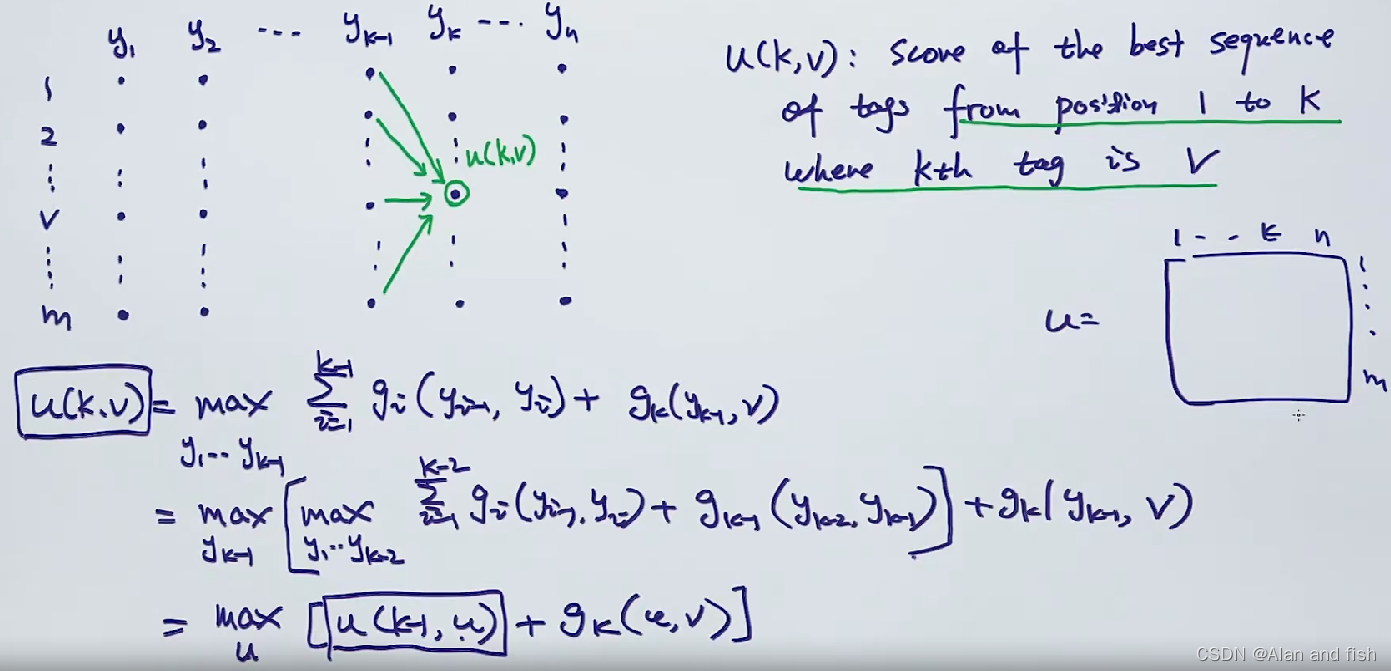 y₁ y₂ --- y_{k-1} y_k --- y_n
1
2
⋮
v
⋮
m
u(k,v)
u(k,v): score of the best sequence
of tags from position 1 to k
where kth tag is v
1 - - k n
1
⋮
m
u=
u(k.v) = max_{y₁--y_{k-1}} ∑_{i=1}^{k-1} g_i(y_{i-1}, y_i) + g_k(y_{k-1}, v)
= max_{y_{k-1}} [max_{y₁--y_{k-2}} ∑_{i=1}^{k-2} g_i(y_{i-1}, y_i) + g_{k-1}(y_{k-2}, y_{k-1})] + g_k(y_{k-1}, v)
= max_u [u(k-1, u) + g_k(u,v)]
CSDN @Alan and fish